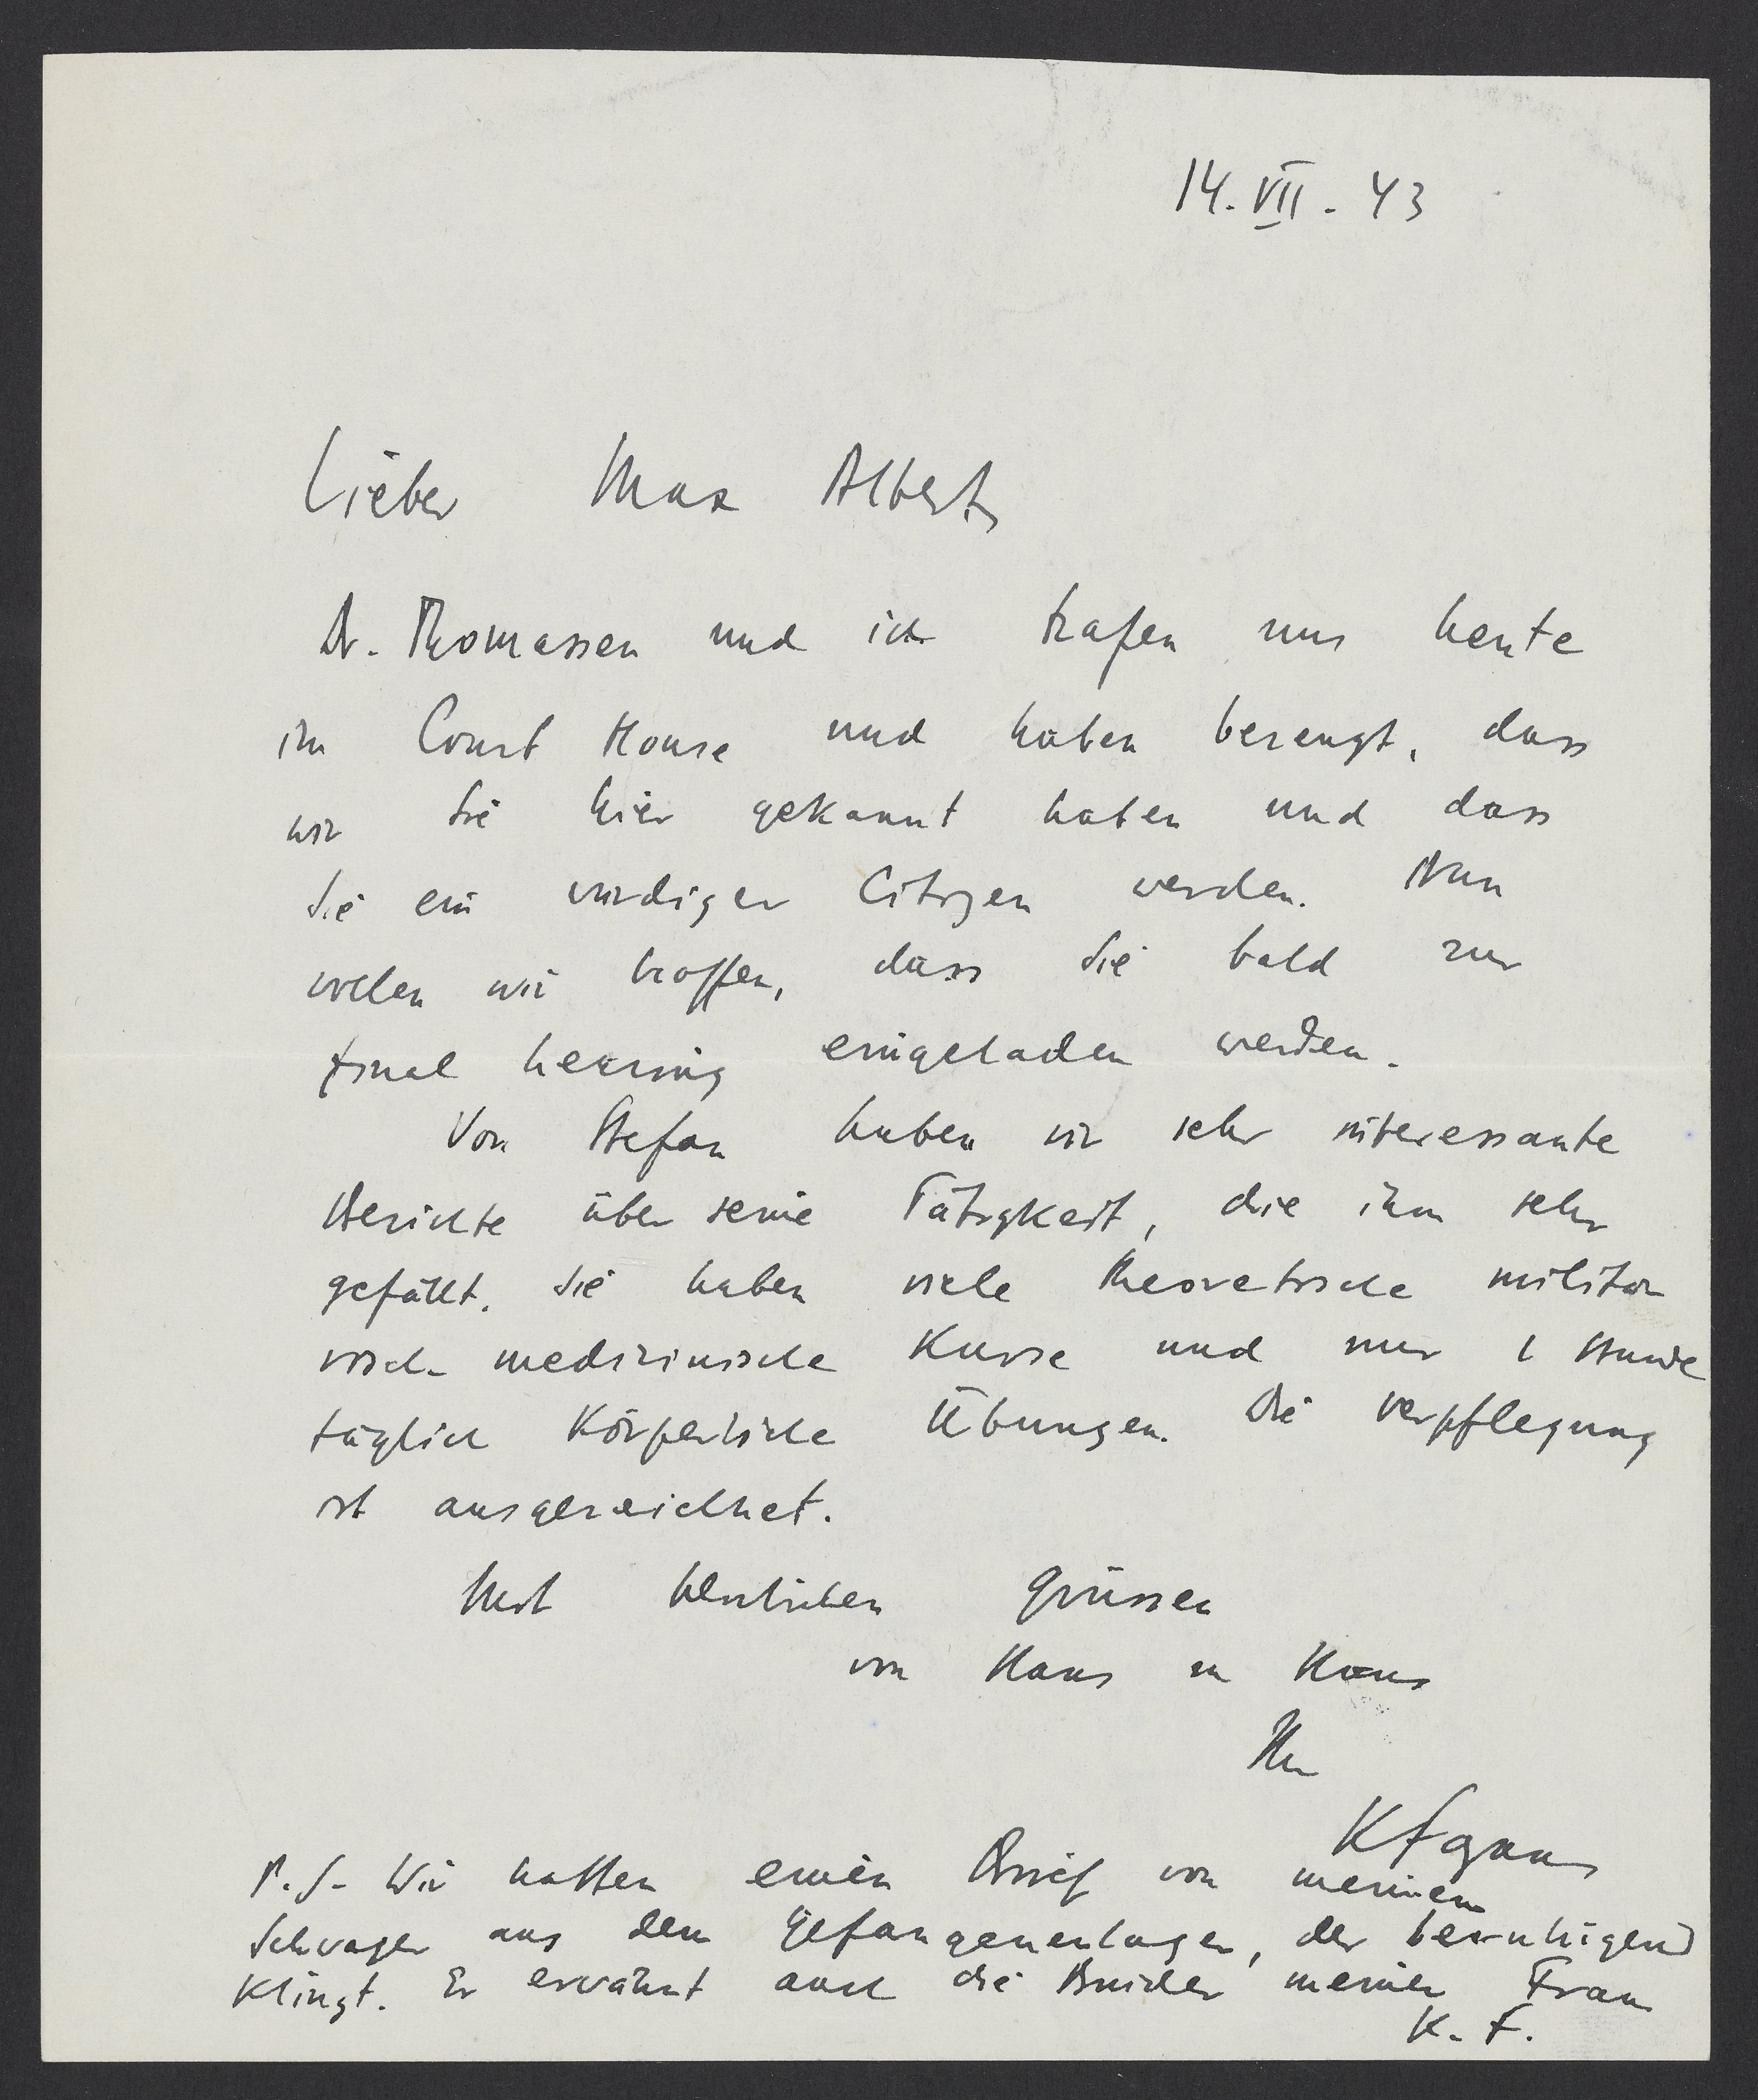 14. VII. 43
Lieber Max Albert,
Dr. Thomassen und ich trafen uns heute
im Court House und haben bezeugt, dass
wir Sie hier gekannt haben und dass
Sie ein würdiger Citizen werden. Nun
wollen wir hoffen, dass Sie bald zur
final hearing eingeladen werden.
Von Stefan haben wir sehr interessante
Berichte über seine Tätigkeit, die ihm sehr
gefällt. Sie haben viele theoretische militä
risch medizinische Kurse und nur 1 Stunde
täglich Körperliche Übungen. Die Verpflegung
ist ausgezeichnet.
Mit herzlichen Grüssen
von Haus zu Haus
Ihr
P.S. Wir hatten einen Brief von meinem
Schwager aus dem Gefangenenlager, der beruhigend
Klingt. Er erwähnt auch die Brüder meiner Frau
K. F.